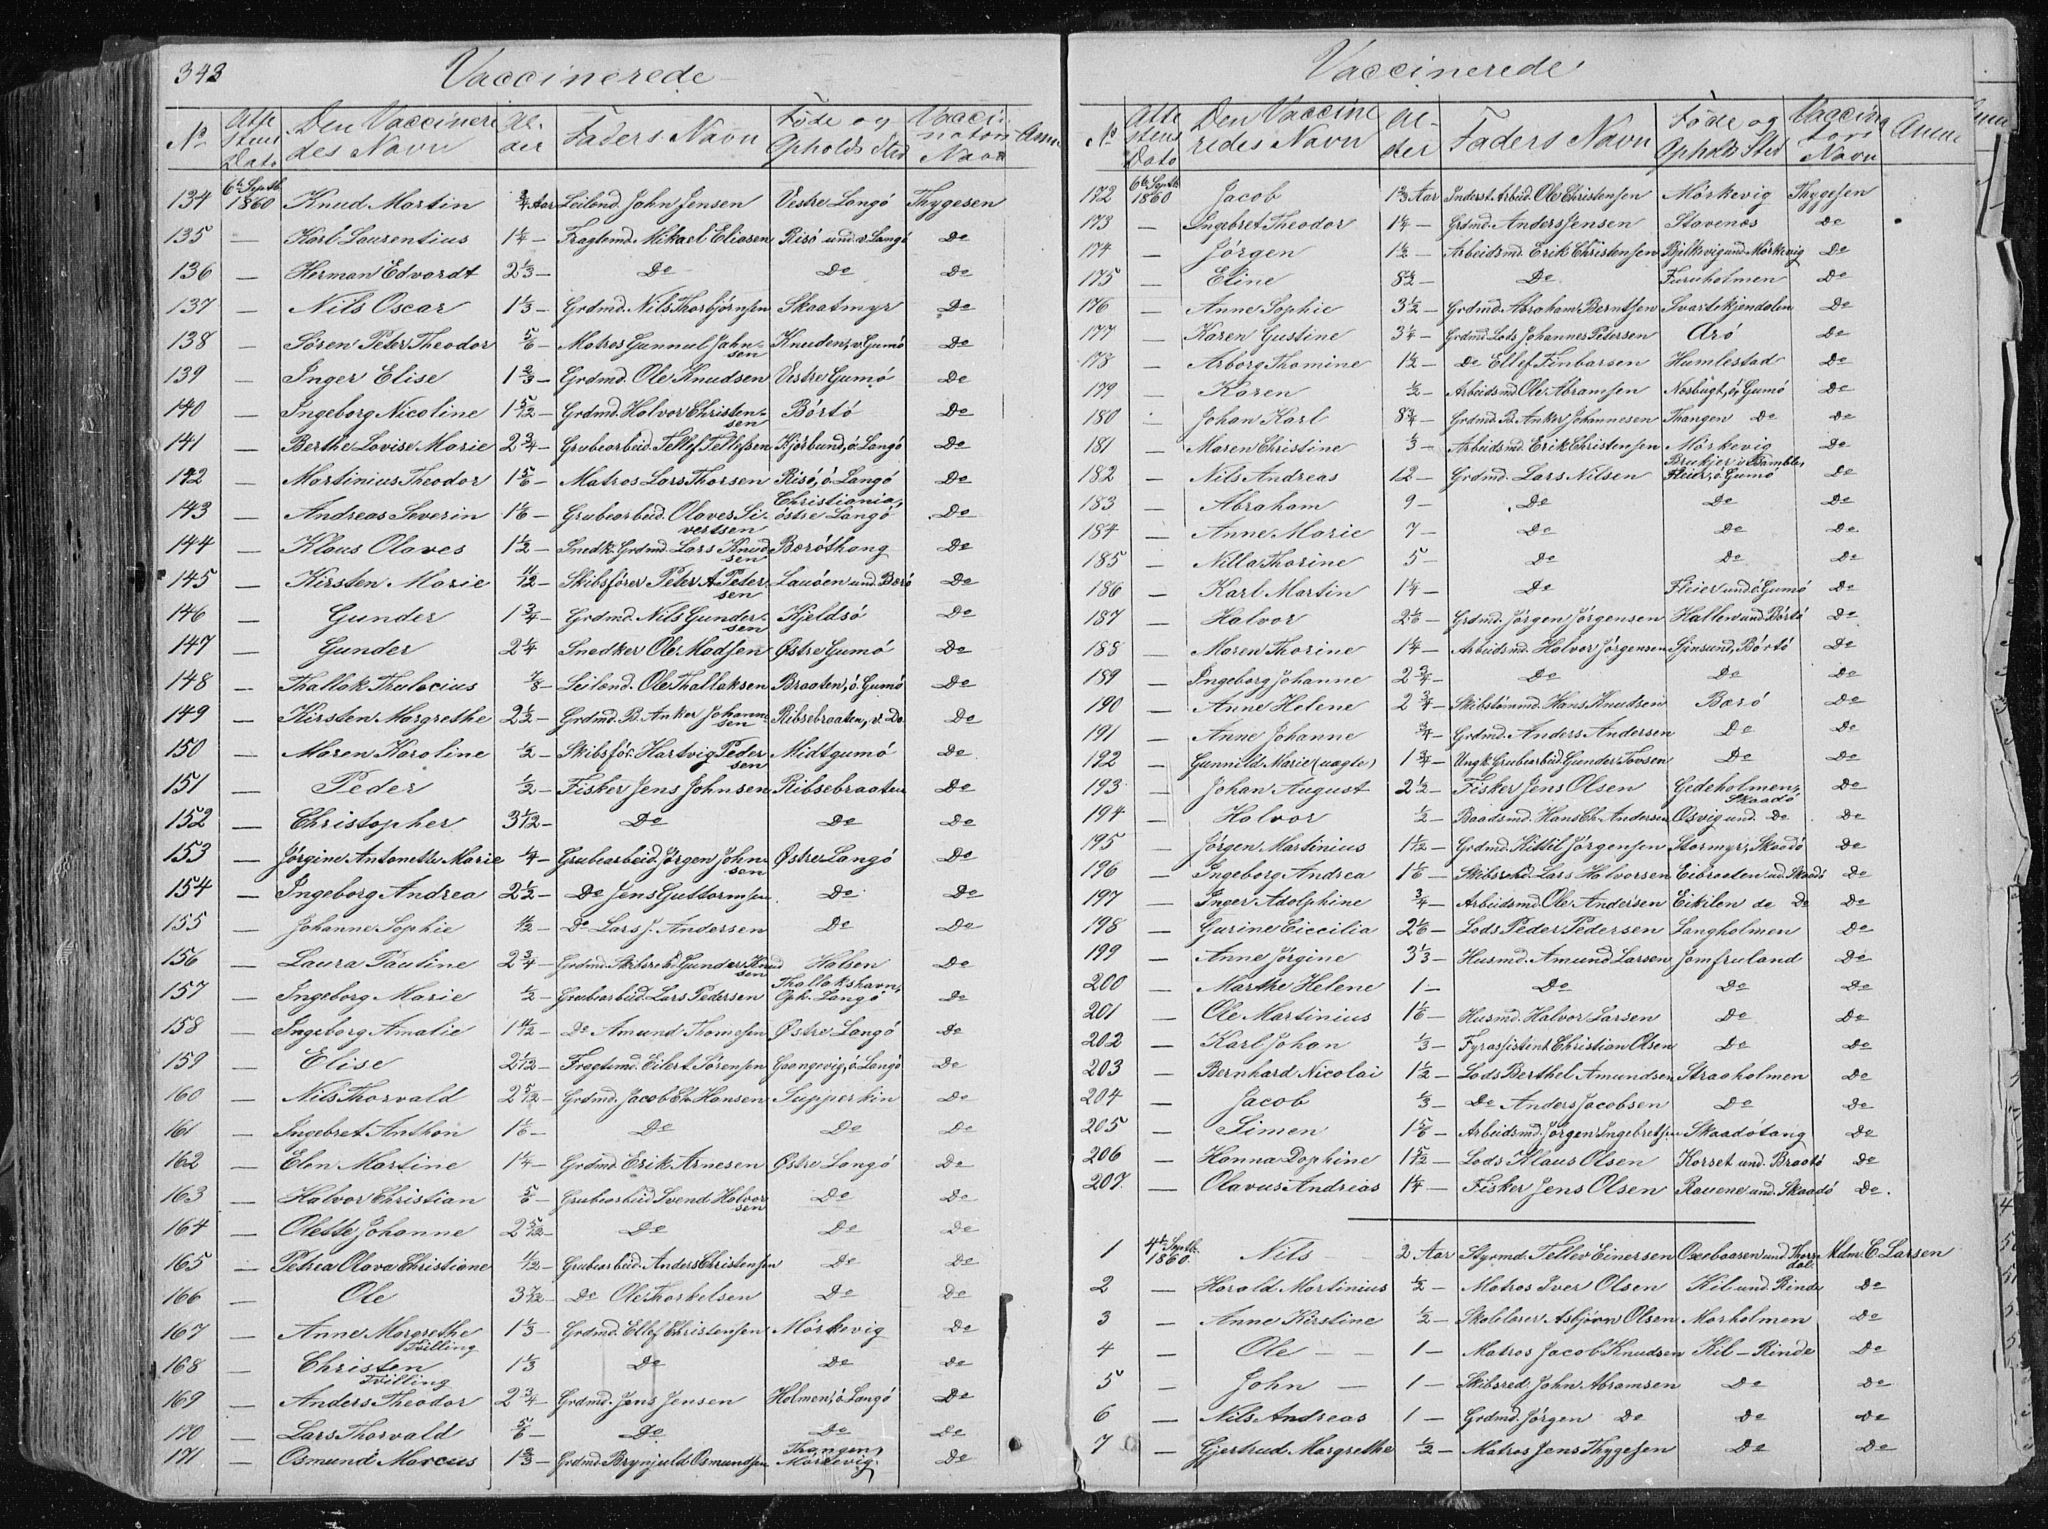 343
Vaccinerede
No Atte stens Dato Den Vaccinere des Navn Al- der Faders Navn Føde og Opholds Sted Vacci- nators Navn Anm
134 6te Septb. 1860 Knud Martin 3/4 Aar Leilend. John Jensen Vestre Langó Thygesen
135 — Karl Laurentius 1 1/4 — Fragtemd. Mikael Eliasen Risó und v. Langó De
136 — Herman Edvardt 2 1/3 — De De De
137 — Nils Oscar 1 1/3 — Grdmd. Nils Thorbjørnsen Skaatmyr De
138 — Søren Peter Theodor 5/6 — Matros Gunnul Jahnsen Knuden, v. Gumó De
139 — Inger Elise 1 2/3 — Grdmd. Ole Knudsen Vestre Gumó De
140 — Ingeborg Nicoline 1 5/12 — Grdmd. Halvor Christensen Børtó De
141 — Berthe Lovise Marie 2 3/4 — Grubearbeid. Tellef Tellefsen Kjórbund, ó. Langó De
142 — Martinius Theodor 1 5/6 — Matros Lars Thorsen Risó, ó. Langó De
143 — Andreas Severin 1 1/6 — Grubearbeid. Olaves Sivertsen Christiania, óstre Langó De
144 — Klaus Olaves 1 1/2 — Snedk. Grdmd. Lars Knudsen Barøthang De
145 — Kirsten Marie 11/12 — Skibsfører Peter A Petersen Lauøen und Barø De
146 — Gunder 1 3/4 — Grdmd. Nils Gundersen Kjeldsó De
147 — Gunder 2 1/4 — Snedker Ole Madsen Østre Gumó De
148 — Thallak Thulocius 7/8 — Leilend. Ole Thallaksen Braaten, ó. Gumó De
149 — Kirsten Margrethe 2 1/2 — Grdmd. B. Anker Johannesen Ribsebraaten, v. Do De
150 — Maren Karoline 1/2 — Skibsfór. Hartvig Pedersen Midtgumó De
151 — Peder 1/2 — Fisker Jens Johnsen Ribsebraaten De
152 — Christopher 3 1/2 — De De De
153 — Jórgine Antonette Marie 1/4 — Grubearbeid. Jørgen Johnsen Østre Langó De
154 — Ingeborg Andrea 2 1/2 — De Jens Guttormsen De De
155 — Johanne Sophie 1/2 — De Lars J. Andersen De De
156 — Laura Pauline 2 3/4 — Grdmd. Skibsred Gunder Knudsen Halsen De
157 — Ingeborg Marie 1/2 — Grubearbeid Lars Pedersen Thallakshavn, Oph. Langó De
158 — Ingeborg Amalie 1 4/12 — De Amund Thomesen Østre Langó De
159 — Elise 2 1/12 — Fragtsmd. Eilert Sørensen Gsangevig, ó. Langó De
160 — Nils Thorvald 2 5/12 — Grdmd. Jacob Ch. Hansen Supperkin De
161 — Ingebret Anthon 1/6 — De De De
162 — Elen Martine 1 1/4 — Grdmd. Erik Arnesen Østre Langó De
163 — Halvor Christian 5/6 — Grubearbeid Svend Halvorsen De De
164 — Olette Johanne 2 5/12 — De De De
165 — Petrea Olava Christiane 1/12 — Grubearbeid. Anders Christensen De De
166 — Ole 3 7/12 — De Ole Thorkelsen De De
167 — Anne Margrethe Tvilling 1 1/3 — Grdmd. Ellef Christensen Mórkevig De
168 — Christen Tvilling 1 1/3 De De De
169 — Anders Theodor 2 3/4 — Grdmd. Jens Jensen Holmen, ó. Langó De
170 — Lars Thorvald 5/6 — De De De
171 — Osmund Marcus 1 2/3 — Grdmd. Brynjuld Osmundsen Thangen, Mórkevig. De
Vaccinerede
No Atte stens Dato Den Vaccine redes Navn Al- der Faders Navn Føde og Opholds Sted Vaccina tors Navn Anm
172 6te Septb. 1860 Jacob 1 3/4 Aar Inderst. Arbeid. Ole Christensen Mórkevig Thygesen
173 — Ingebret Theodor 1 1/4 — Grdmd. Anders Jensen Stavenæs De
174 — Jórgen 1 1/2 — Arbeidsmd. Erik Christensen Bjelkevig und Mórkevig De
175 — Eline 8 1/2 — De Furuholmen De
176 — Anne Sophie 3 1/2 — Grdmd. Abraham Berntsen Svartekjendalen De
177 — Karen Gustine 3 1/4 — Grdmd. Lods Johannes Petersen Aró De
178 — Arborg Thomine 1 1/2 — De Ellef Finbersen Humlestad De
179 — Karen 1/2 — Arbeidsmd. Ole Abramsen Næsbugt, ó. Gumó De
180 — Johan Karl 8 3/4 — Grdmd. B. Anker Johannesen Thangen De De
181 — Maren Christine — Arbeidsmd. Erik Christensen Mórkevig De
182 — Nils Andreas 12 — Grdmd. Lars Nilsen Brukjer i Bamble, Fleier, ó. Gumó De
183 — Abraham 9 — De De De
184 — Anne Marie 7 — De De De
185 — Nilla Thorine 5 — De De De
186 — Karl Martin 1 1/4 — De Fleier und ó. Gumó De
187 — Halvor 2 1/6 — Grdmd. Jørgen Jørgensen Hallen und Børtó De
188 — Maren Thorine 1 1/4 — Arbeidsmd. Halvor Jórgensen Sjinsund, Børtó De
189 — Ingeborg Johanne 2 3/4 — De De De
190 — Anne Helene 2 3/4 — Skibstømmd. Hans Knudsen Baró De
191 — Anne Johanne 3/4 — Grdmd. Anders Andersen De De
192 — Gunnild Marie (uægte) 1 3/4 — Ungk. Grubearbeid. Gunder Tovsen De De
193 — Johan August 2 1/2 — Fisker Jens Olsen Gedeholmen, Skaadó De
194 — Halvor 1/2 — Baadsmd. Hans Ch. Andersen Osvig und. De De
195 — Jórgen Martinius 1 1/12 — Grdmd. Kittil Jørgensen Stormyr, Skaadó De
196 — Ingeborg Andrea 1 1/6 — Skibsred. Lars Halvorsen Eibraaten ud Skaadó De
197 — Inger Adolphine 3/4 — Arbeidsmd. Ole Andersen Eikilen de De De
198 — Gurine Ciccilia 2 1/6 — Lods Peder Pedersen Langholmen De
199 — Anne Jórgine 3 1/3 — Husmd. Amund Larsen Jomfruland De
200 — Marthe Helene 1 — De De De
201 — Ole Martinius 1 1/6 — Husmd. Halvor Larsen De De
202 — Karl Johan 1/3 — Fyrassistent Christian Olsen De De
203 — Bernhard Nicolai 1 1/2 — Lods Berthel Amundsen Straaholmen De
204 — Jacob 1/3 — De Anders Jacobsen De De
205 — Simen 1 5/6 — Arbeidsmd. Jórgen Ingebretsen Skaadótang De
206 — Hanna Dophine 1 5/12 — Lods Klaus Olsen Korset und. Braató De
207. — Olavus Andreas 1 1/4 — Fisker Jens Olsen Rauene und. Skaadó De.
1 4te Septb. 1860. Nils 2 Aar Styrmd. Tellev Einersen Oxebaasen und Thorsdal. Mdm. C. Larsen
2 — Harald Martinius 1/2 — Matros Iver Olsen Kil und Rinde De
3 — Anne Kirstine 1/2 — Skolelærer Asbjørn Olsen Morholmen De
4 — Ole — 1 — Matros Jacob Knudsen Kil — Rinde De
5 — John — 1 — Skibsred. John Abramsen De De
6 — Nils Andreas 1 — Grdmd. Jórgen De De De
7 — Gjertrud Margrethe 1/2 — Matros Jens Thygesen De De